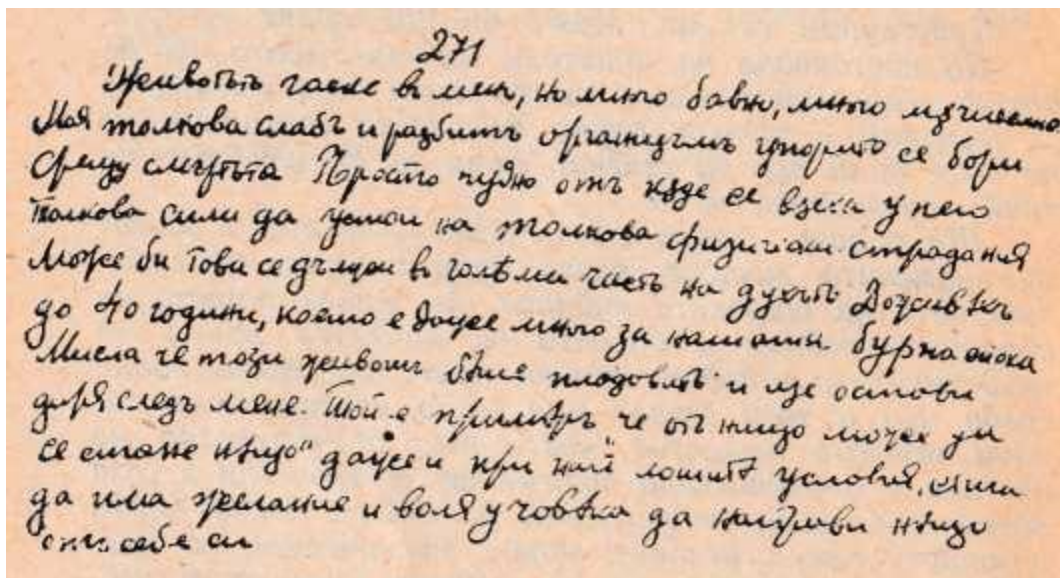 271
Животътъ гасне въ менъ, но много бавно, много мѫчително
Моя толкова слабъ и разбитъ организъмъ упорито се бори
срещу смъртьта Просто чудно отъ кѫде се взеха у него
толкова сили да устои на толкова физически страдания
Може би това се дължи въ голѣма часть на духътъ Доживѣхъ
до 40 години, което е даже много за нашата бурна епоха
Мисля че този животъ бѣше плодовитъ и ще остави
диря следъ мене. Той е примѣръ че отъ нищо може да
се стане нѣщо" даже и при най лошитѣ условия, стига
да има желание и воля у човѣка да направи нѣщо
отъ себе си